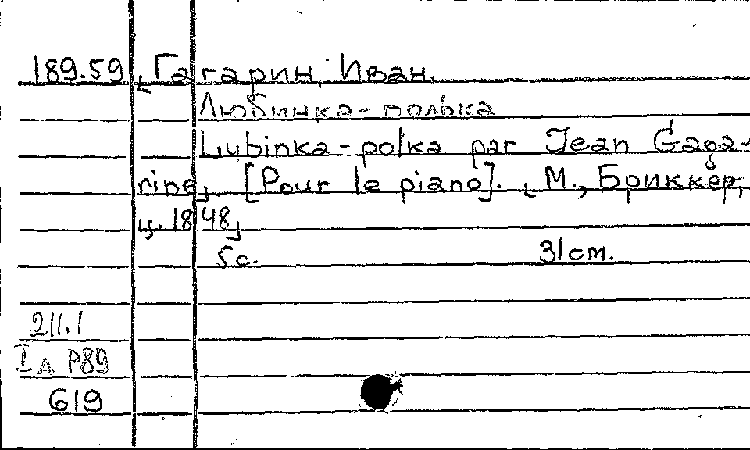 189.59 ⌊Гагарин, Иван.
Любинка-полька
Lubinka-polka par Jean Gaga-
rine⌋. [Pour le piano]. ⌊М., Бриккер,
ц. 1848⌋
5с. 31см.
211.1
I д P89
619